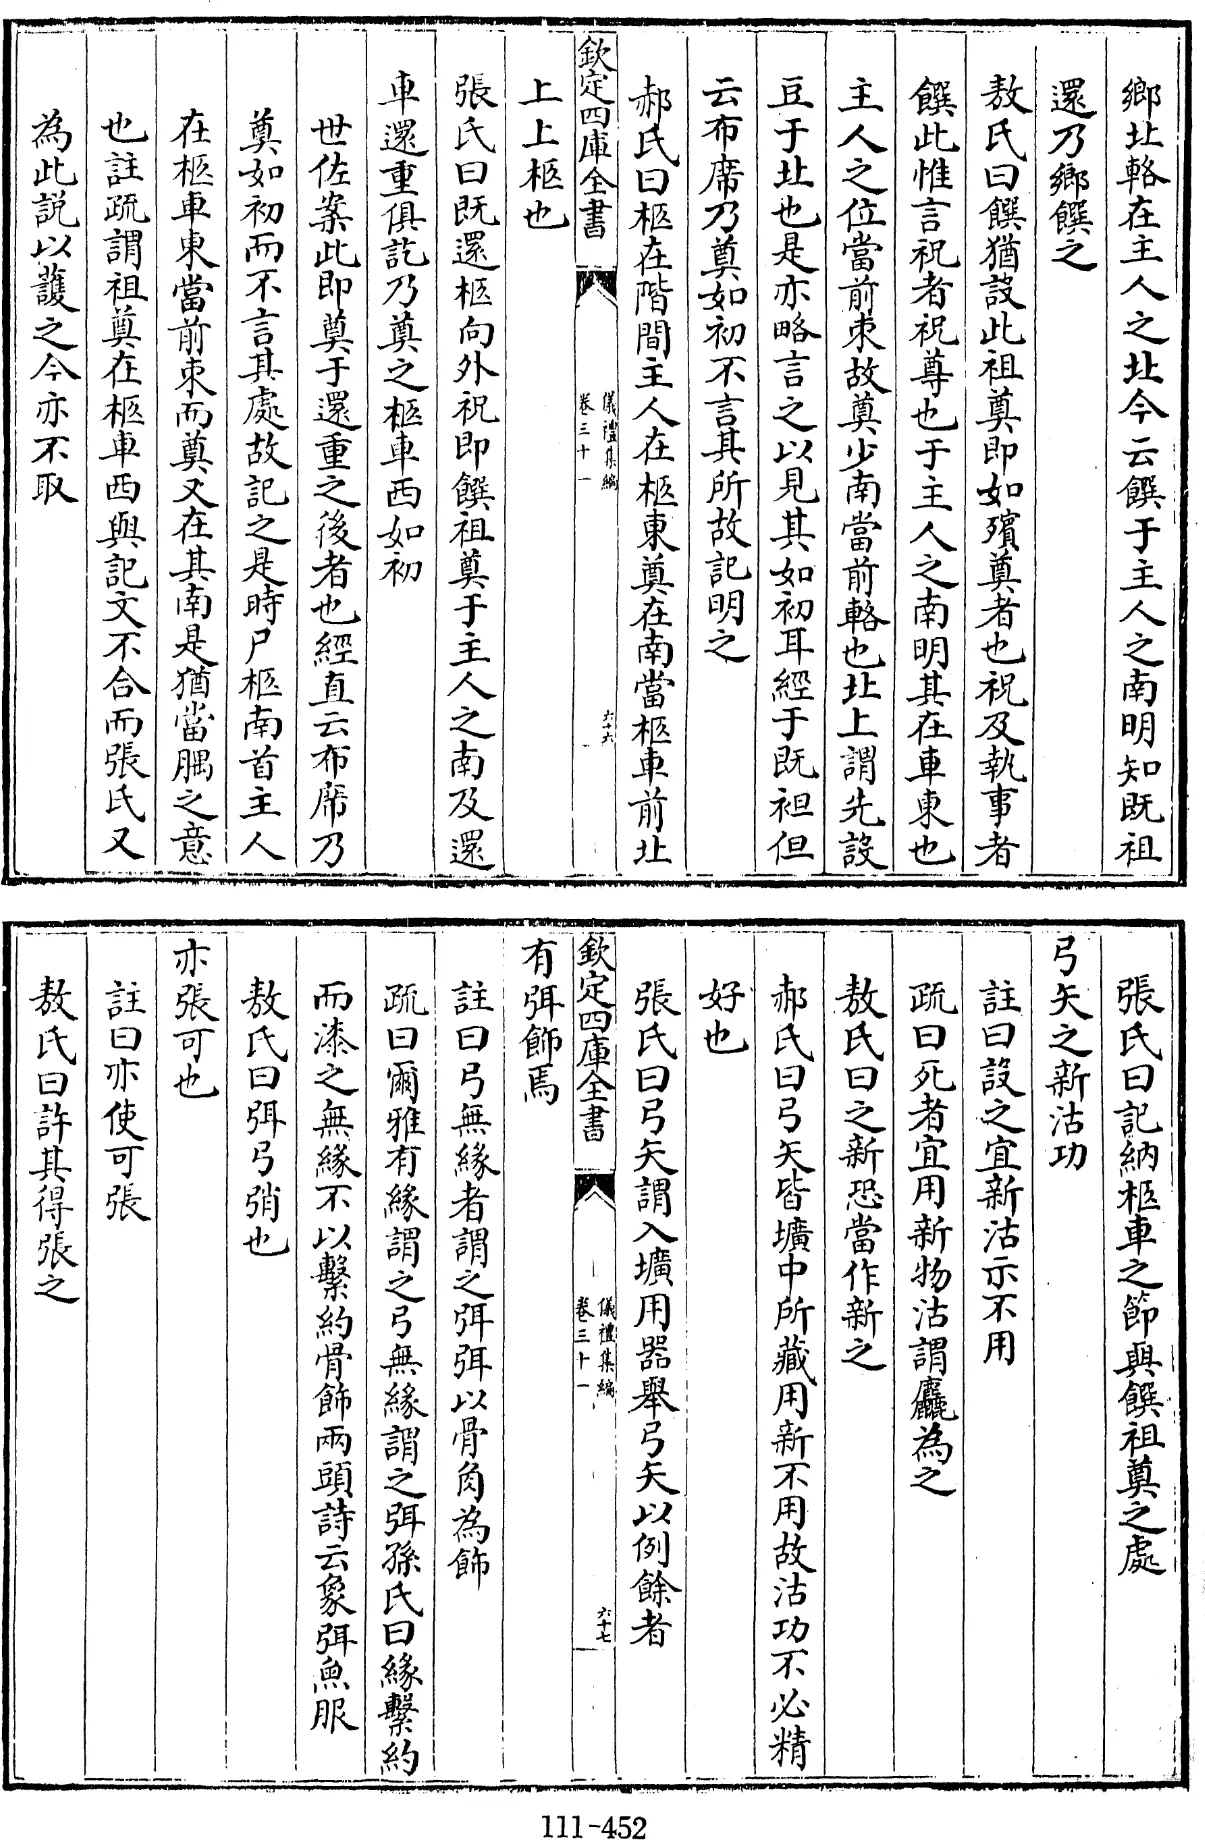 鄉北輅在主人之北今云饌于主人之南明知既祖
還乃鄉饌之
敖氏曰饌猶設此祖奠即如殯奠者也祝及執事者
饌此惟言祝者祝尊也于主人之南明其在車東也
主人之位當前束故奠少南當前輅也北上謂先設
豆于北也是亦略言之以見其如初耳經于既袒但
云布席乃奠如初不言其所故記明之
郝氏曰柩在階間主人在柩東奠在南當柩車前北
欽定四庫全書
儀禮集編
卷三十一
六十六
上上柩也
張氏曰既還柩向外祝即饌祖奠于主人之南及還
車還重俱訖乃奠之柩車西如初
世佐案此即奠于還重之後者也經直云布席乃
奠如初而不言其處故記之是時尸柩南首主人
在柩車東當前束而奠又在其南是猶當腢之意
也註疏謂祖奠在柩車西與記文不合而張氏又
為此説以護之今亦不取
張氏曰記納柩車之節與饌祖奠之處
弓矢之新沽功
註曰設之宜新沽示不用
疏曰死者宜用新物沽謂麤為之
敖氏曰之新恐當作新之
郝氏曰弓矢皆壙中所藏用新不用故沽功不必精
好也
張氏曰弓矢謂入壙用器舉弓矢以例餘者
欽定四庫全書
儀禮集編
卷三十一
六十七
有弭飾焉
註曰弓無緣者謂之弭弭以骨角為飾
疏曰爾雅有緣謂之弓無緣謂之弭孫氏曰緣繫約
而漆之無緣不以繫約骨飾兩頭詩云象弭魚服
敖氏曰弭弓弰也
亦張可也
註曰亦使可張
敖氏曰許其得張之
111-452